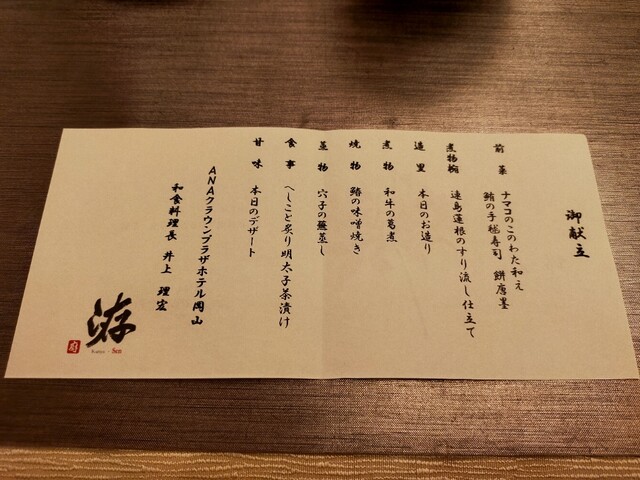 御献立
前菜 ナマコのこのわた和え
鮪の手毬寿司 餅唐墨
煮物椀 連島蓮根のすり流し仕立て
造里 本日のお造り
煮物 和牛の葛煮
焼物 鰆の味噌焼き
蒸物 穴子の蕪蒸し
食事 へしこと炙り明太子茶漬け
甘味 本日のデザート
ANAクラウンプラザホテル岡山
和食料理長 井上 理宏
游